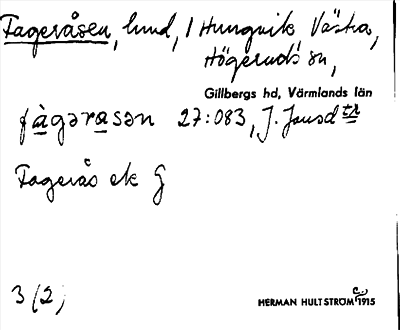 Fageråsen, lund, / Hungvik Västra,
Högeruds sn,
Gillbergs hd, Värmlands län
fàgəråsən 27:083, J. Jansd
Fagerås ek G
3 (2)
HERMAN HULTSTRÖM c. 1915